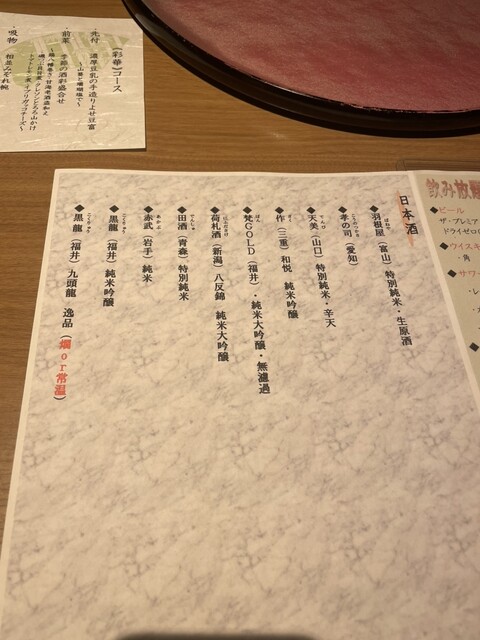 日本酒
◆羽根屋（富山）特別純米・生原酒
◆孝の司（愛知）
◆天美（山口）特別純米・辛天
◆作（三重）和悦 純米吟醸
◆梵GOLD（福井）・純米大吟醸・無濾過
◆荷札酒（新潟）八反錦 純米大吟醸
◆田酒（青森）特別純米
◆赤武（岩手）純米
◆黒龍（福井）純米吟醸
◆黒龍（福井）九頭龍 逸品（燗or常温）
飲み放題
◆ビール
ザ・プレミア
ドウイゼロ
◆ウイスキ
・角
◆サワー
・レ
《彩華》コース
先付 濃厚豆乳の手造りよせ豆富
～山葵と珊瑚塩で～
前菜 季節の酒彩盛合せ
・吸物